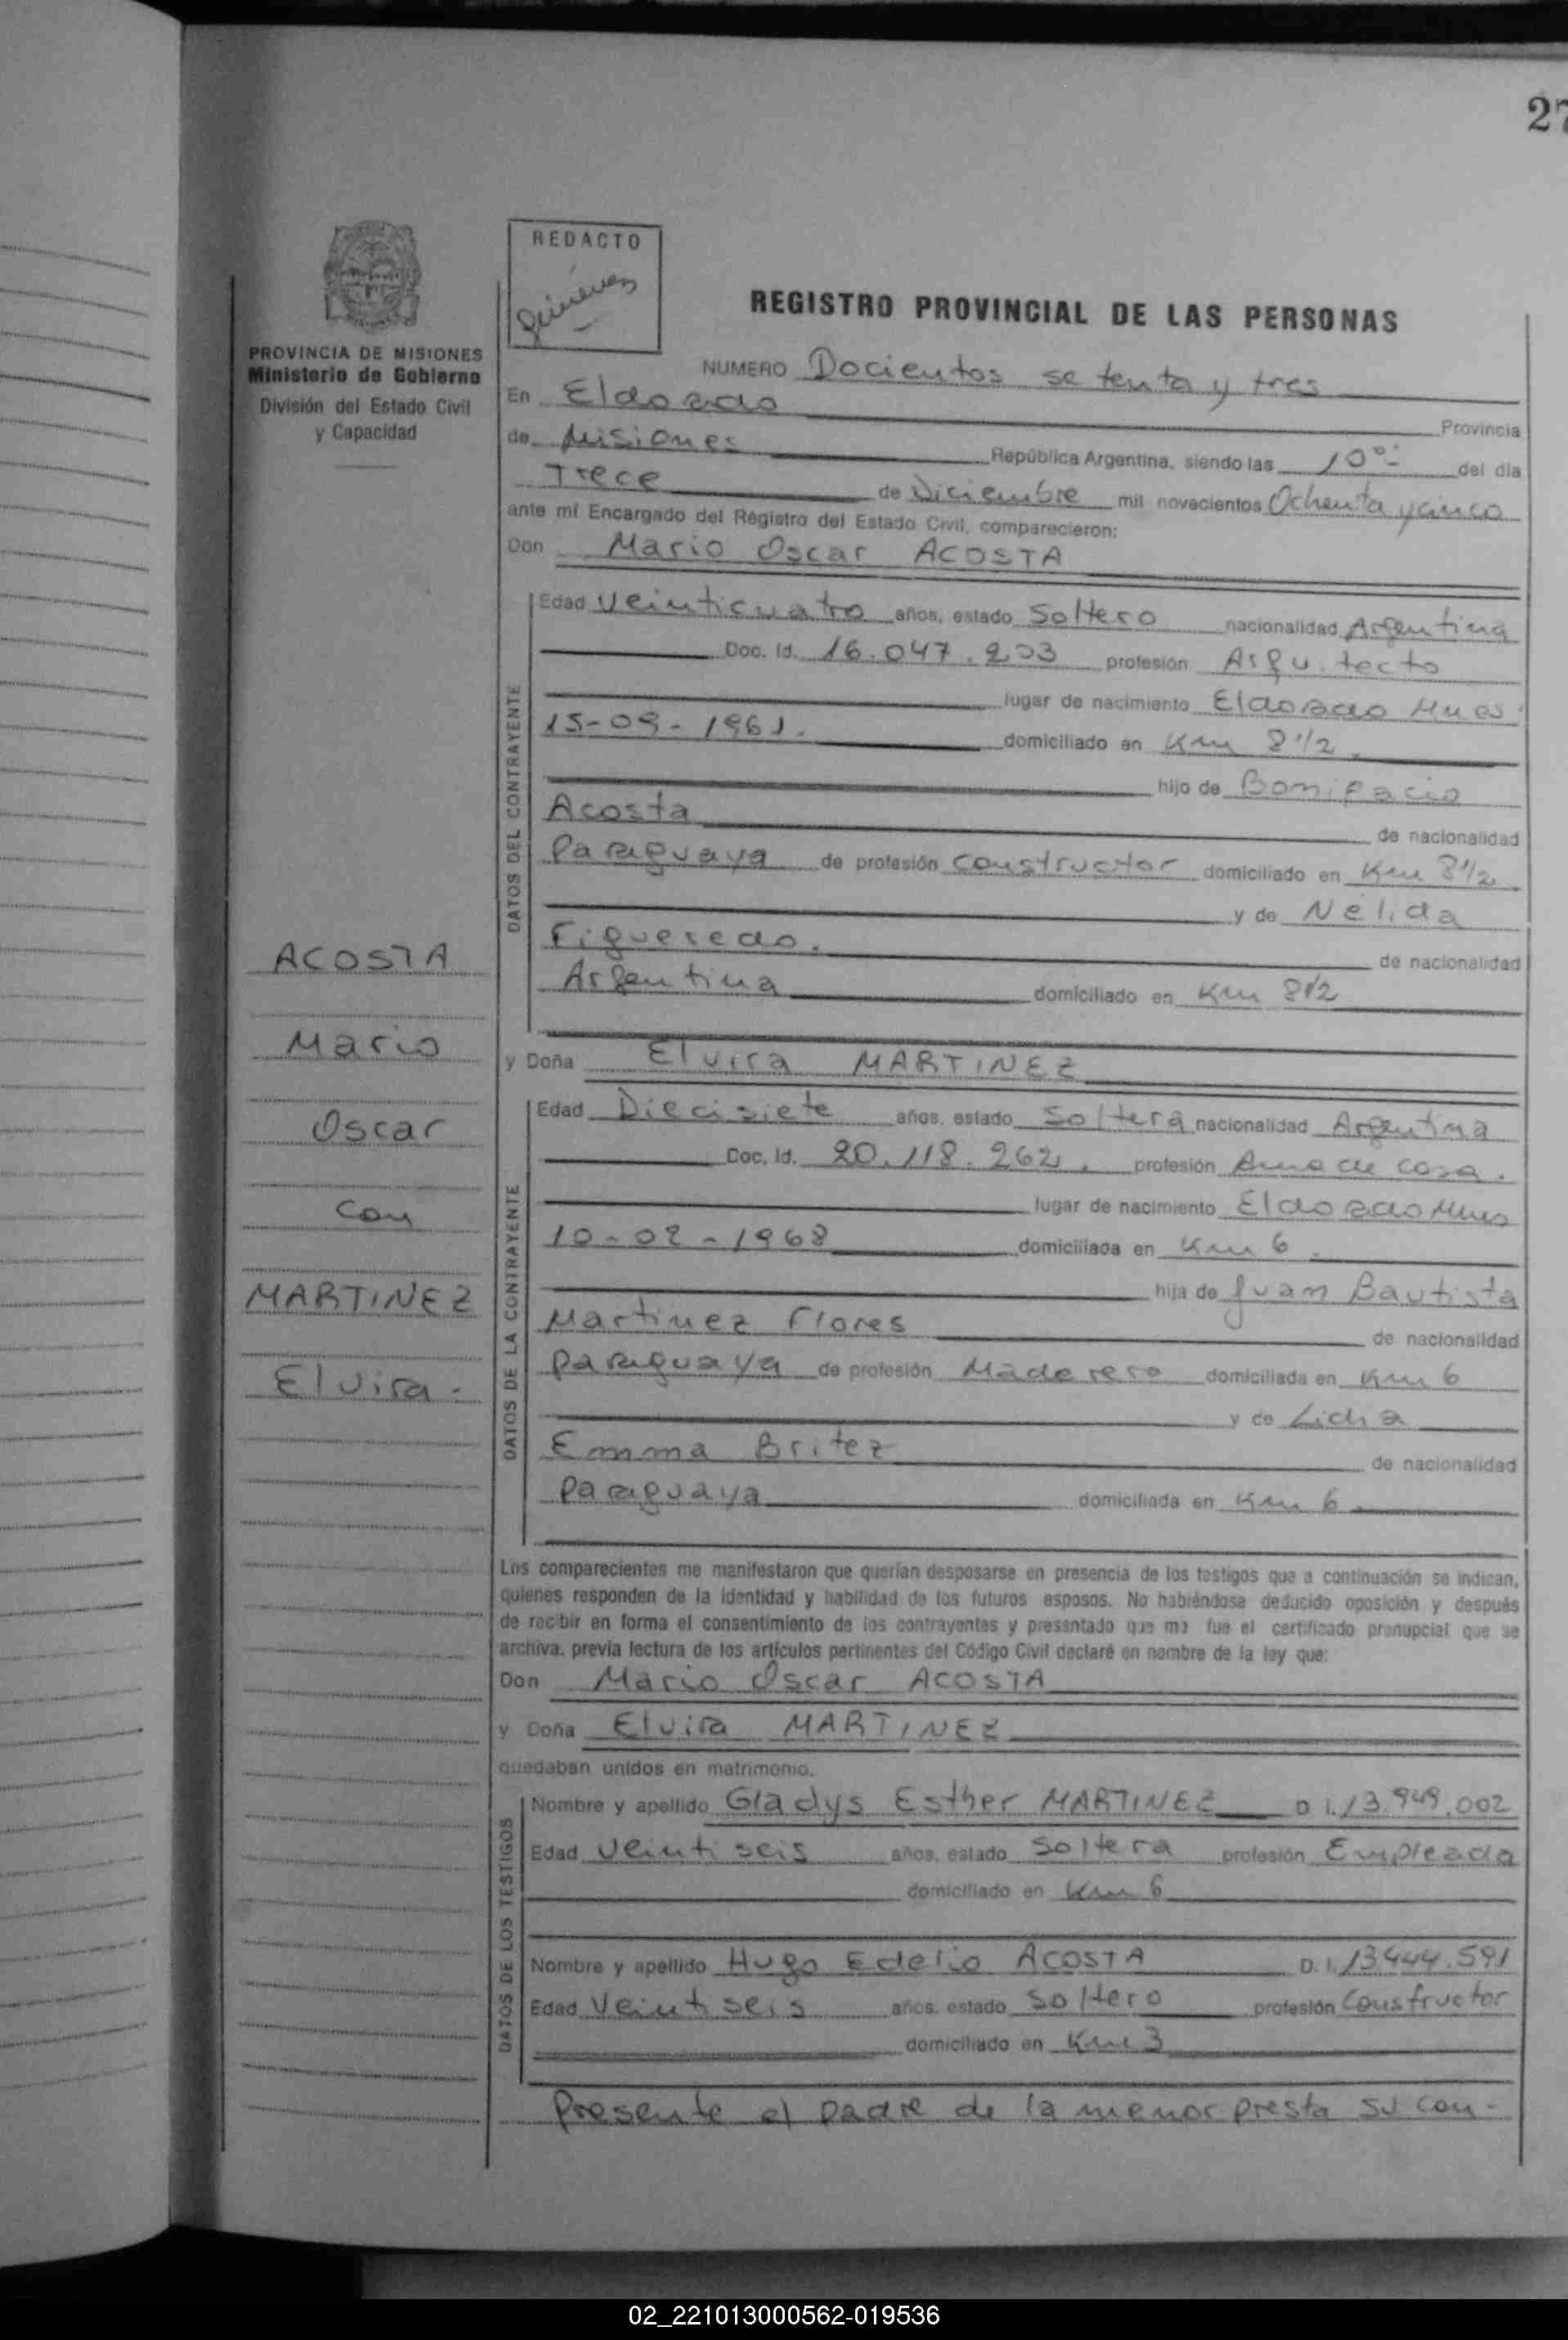 27
REDACTO
REGISTRO PROVINCIAL DE LAS PERSONAS
PROVINCIA DE MISIONES
Ministerio de Gobierno
División del Estado Civil
y Capacidad
NUMERO Docientos setenta y tres
En Eldorado
Provincia
de Misiones República Argentina, siendo las 10°° del día
Trece de Diciembre mil novecientos Ochenta y cinco
ante mí Encargado del Registro del Estado Civil, comparecieron:
Don Mario Oscar ACOSTA
DATOS DEL CONTRAYENTE
Edad Veinticuatro años, estado Soltero nacionalidad Argentina
Doc. Id. 16.047.203 profesión Arquitecto
lugar de nacimiento Eldorado Mnes
15-09-1961. domiciliado en Km 8 1/2.
hijo de Bonifacio
Acosta de nacionalidad
Paraguaya de profesión Constructor domiciliado en Km 8 1/2
y de Nélida
Figueredo. de nacionalidad
Argentina domiciliado en Km 8 1/2
y Doña Elvira MARTINEZ
DATOS DE LA CONTRAYENTE
Edad Diecisiete años, estado Soltera nacionalidad Argentina
Doc. Id. 20.118.262. profesión Ama de casa.
lugar de nacimiento Eldorado Mnes
10-02-1968 domiciliada en Km 6.
hija de Juan Bautista
Martinez Flores de nacionalidad
Paraguaya de profesión Maderero domiciliada en Km 6
y de Lidia
Emma Britez de nacionalidad
Paraguaya domiciliada en Km 6.
ACOSTA
Mario
Oscar
con
MARTINEZ
Elvira.-
Los comparecientes me manifestaron que querían desposarse en presencia de los testigos que a continuación se indican,
quienes responden de la identidad y habilidad de los futuros esposos. No habiéndose deducido oposición y después
de recibir en forma el consentimiento de los contrayentes y presentado que me fue el certificado prenupcial que se
archiva, previa lectura de los artículos pertinentes del Código Civil declaré en nombre de la ley que:
Don Mario Oscar ACOSTA
y Doña Elvira MARTINEZ
quedaban unidos en matrimonio.
DATOS DE LOS TESTIGOS
Nombre y apellido Gladys Esther MARTINEZ D.I. 13.949.002
Edad Veintiseis años, estado Soltera profesión Empleada
domiciliado en Km 6
Nombre y apellido Hugo Edelio ACOSTA D.I. 13.444.591
Edad Veintiseis años, estado Soltero profesión Constructor
domiciliado en Km 3
Presente el padre de la menor presta su con-
02_221013000562-019536